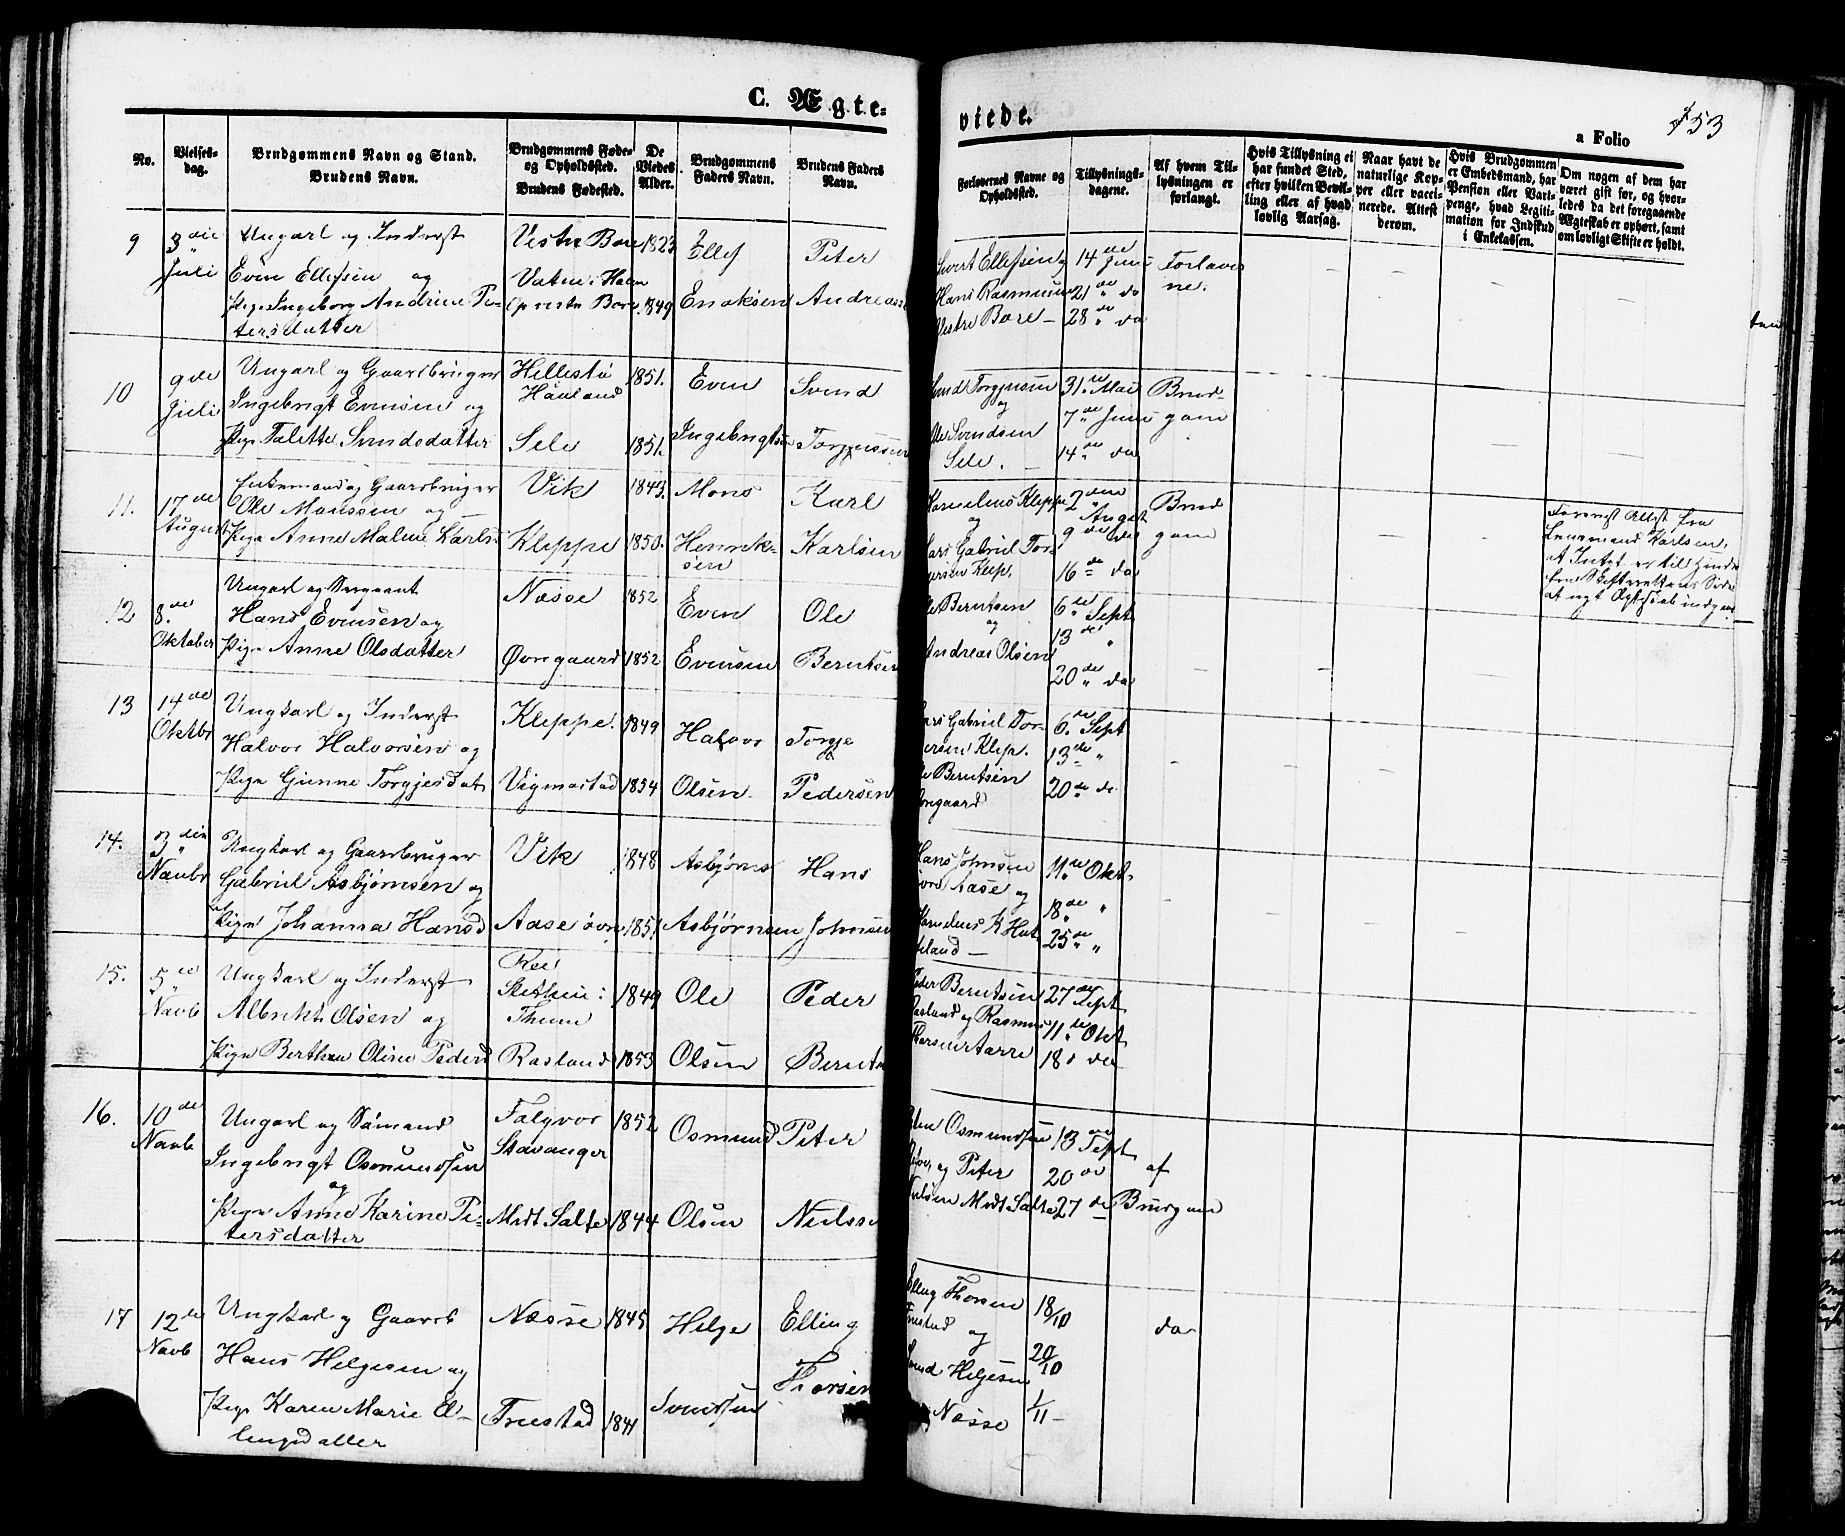 C. Ægte-
viede.
153
a Folio
No.
Vielses-
dag.
Brudgommens Navn og Stand.
Brudens Navn.
Brudgommens Føde-
og Opholdssted.
Brudens Fødested.
De
Viedes
Alder.
Brudgommens
Faders Navn.
Brudens Faders
Navn.
Forlovernes Navne og
Opholdssted.
Tillysnings-
dagene.
Af hvem Til-
lysningen er
forlangt.
Hvis Tillysning ei
har fundet Sted,
efter hvilken Bevil-
ling eller af hvad
lovlig Aarsag.
Naar havt de
naturlige Kop-
per eller vacci-
nerede. Attest
derom.
Hvis Brudgommen
er Embedsmand, har
Pension eller Varti-
penge, hvad Legiti-
mation for Indskud
i Enkekassen.
Om nogen af dem har
været gift før, og hvor-
ledes da det foregaaende
Ægteskab er ophørt, samt
om lovligt Skifte er holdt.
9
3die
Juli
Ungarl og Inderst
Even Ellefsen og
Pige Ingeborg Andrine Pe-
tersdatter
Vestre Bore
1823
1849
Ellef
Enoksen
Peter
Sivert Ellefsen
Hans Rasmusen
Vestre Bore
14de Juni
21de do
28de do
Forlover
ne.
10
9de
Juli
Ungarl og Gaardbruger
Ingebrigt Evensen og
Pige Talette Svendsdatter
Hellestø
Håuland
Sele
1851.
1851.
Even
Ingebrigtsen
Svend
Svend
Ole Svendsen
Sele.
31te Mai
7de Juni
14de do
Brud-
gom
11.
17de
August
Enkemand og Gaardbruger
Ole Monssen og
Pige Anne Malene Karls
Vik
Kleppe
1843.
1850.
Mons
Henrik-
sen
Karl
Karlsen
Kornelius Kleppe
og
Lars Gabriel Tor-
gersen Klep.
2den
August
9de do
16de do
Brud
gom
Foreviist Attest fra
Lensmand Karlsen,
at Intet er til Hinder
fra Skifterettens Side
at nyt Ægteskab indgaaes
12
8de
Oktober
Ungarl og Sergeant
Hans Evensen og
Pige Anne Olsdatter
Næsse
Øvregaard
1852
1852
Even
Evensen
Ole
Berntsen
Ole Berntsen
og
Andreas Olsen
6te Sept
13de "
20de do
13
14de
Oktbr
Ungkarl og Inderst
Halvor Halvorsen og
Pige Gunne Torgjesdat
Kleppe.
Vigmostad
1849
1854
Halvor
Olsen
Torgje
Pedersen
Lars Gabriel Tor-
gersen Klep.
Ole Berntsen
Øvregaard
6te Sept
13de "
20de do
14.
3die
Novbr
Ungkarl og Gaardbruger
Gabriel Asbjørnsen og
Pige Johanna Hansd
Vik
Aase øvre
1848
1851
Asbjørn
Asbjørnsen
Hans
Johnsen
Hans Johnsen
øvre Aase og
11te Okt.
18de "
25de "
15.
5te
Novb
Ungkarl og Inderst
Albrikt Olsen og
Pige Berthea Oline Peders
Thime
Rosland
1849
1853
Ole
Olsen
Peder
Berntsen
Peder Berntsen
Rosland og Rasmus
27de Sept
11te Okt
18de do
16.
10de
Novb
Ungarl og Sømand
Ingebrigt Osmundsen
og
Pige Anne Karine Pe-
tersdatter
Stavanger
Midt Salte
1852
1844
Osmund
Olsen
Peter
Nielsen
Osmundsen
og Peter
Nielsen Midt Salte
13de Sept
20de
27de
af
Brudgom
17
12te
Novb
Ungkarl og Gaardb
Hans Helgesen og
Pige Karen Marie El-
lingsdatter
Næsse
Truestad
1845
1841
Helge
Svendsen
Elling
Thorsen
Elling Thorsen
Truestad og
Svend Helgesen
Næsse
18/10
20/10
1/11
do